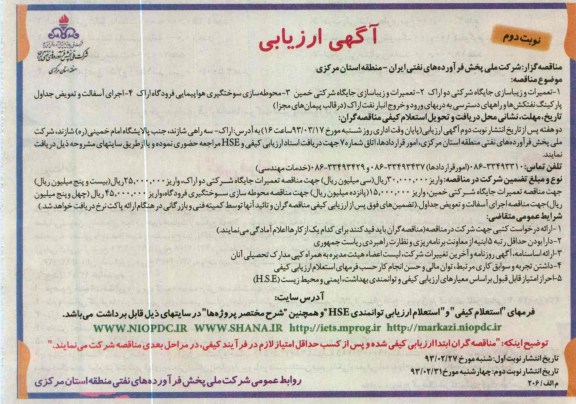 نوبت دوم
آگهی ارزیابی
شرکت ملی پخش فرآورده‌های نفتی ایران
منطقه استان مرکزی
مناقصه گزار: شرکت ملی پخش فرآورده‌های نفتی ایران - منطقه استان مرکزی
موضوع مناقصه:
۱-تعمیرات و زیباسازی جایگاه شرکتی دو اراک ۲-تعمیرات و زیباسازی جایگاه شرکتی خمین ۳-محوطه‌سازی سوختگیری هواپیمایی فرودگاه اراک ۴-اجرای آسفالت و تعویض جداول
پارکینگ نفتکش‌ها و راههای دسترسی به دربهای ورود و خروج انبار نفت اراک (در قالب پیمان‌های مجزا)
تاریخ، مهلت، نشانی محل دریافت و تحویل استعلام کیفی مناقصه‌گران:
دو هفته پس از تاریخ انتشار نوبت دوم آگهی ارزیابی (پایان وقت اداری روز شنبه مورخ ۹۳/۰۳/۱۷ ساعت ۱۶) به آدرس: اراک- سه راهی شازند، جنب پالایشگاه امام خمینی (ره) شازند، شرکت
ملی پخش فرآورده‌های نفتی منطقه استان مرکزی، امور قراردادها، اتاق شماره ۷ جهت دریافت اسناد ارزیابی کیفی و HSE مراجعه حضوری نموده و یا از طریق سایتهای مشروحه ذیل دریافت
نمایند.
تلفن تماس: ۳۳۴۹۳۳۱۰-۰۸۶ (امور قراردادها) ۳۳۴۹۳۴۳۷-۰۸۶ و ۳۳۴۹۳۴۲۹-۰۸۶ (خدمات مهندسی)
نوع و مبلغ تضمین شرکت در مناقصه: واریز ۳۰،۰۰۰،۰۰۰ ریال (سی میلیون ریال) جهت مناقصه تعمیرات جایگاه شرکتی دو اراک، واریز ۲۵،۰۰۰،۰۰۰ ریال (بیست و پنج میلیون ریال)
جهت مناقصه تعمیرات جایگاه شرکتی خمین، واریز ۱۵،۰۰۰،۰۰۰ (پانزده میلیون ریال) جهت مناقصه محوطه سازی سوختگیری فرودگاه، واریز ۴۵،۰۰۰،۰۰۰ ریال (چهل و پنج میلیون
ریال) جهت مناقصه اجرای آسفالت و تعویض جداول. (تضمین‌های فوق پس از ارزیابی کیفی مناقصه گران و تائید آنها توسط کمیته فنی و بازرگانی در هنگام ارائه پاکت نرخ دریافت خواهد شد.)
شرایط عمومی متقاضی:
۱-ارائه درخواست کتبی جهت شرکت در مناقصه (مناقصه گران باید قید کنند برای کدام یک از کارها اعلام آمادگی می‌نمایند)
۲-دارا بودن حداقل رتبه ۵ ابنیه از معاونت برنامه‌ریزی و نظارت راهبردی ریاست جمهوری
۳-ارائه اساسنامه، آگهی روزنامه و آخرین تغییرات شرکت، لیست اعضاء هیئت مدیره به همراه کپی مدارک تحصیلی آنان
۴-داشتن تجربه و سوابق کاری مرتبط، توان مالی و حسن انجام کار حسب فرمهای استعلام ارزیابی کیفی
۵-احراز امتیاز قابل قبول بر اساس معیارهای ارزیابی کیفی و توانمندی بهداشت، ایمنی و محیط زیست (H.S.E)
آدرس سایت:
فرمهای "استعلام کیفی" و "استعلام ارزیابی توانمندی HSE" و همچنین "شرح مختصر پروژه‌ها" در سایتهای ذیل قابل برداشت می‌باشد.
WWW.NIOPDC.IR WWW.SHANA.IR http://iets.mprog.ir http://markazi.niopdc.ir
توضیح اینکه: "مناقصه گران ابتدا ارزیابی کیفی شده و پس از کسب حداقل امتیاز لازم در فرآیند کیفی، در مراحل بعدی مناقصه شرکت می‌نمایند."
تاریخ انتشار نوبت اول: شنبه مورخ ۹۳/۰۲/۲۷
تاریخ انتشار نوبت دوم: چهارشنبه مورخ ۹۳/۰۲/۳۱
م الف/۲۰۶
روابط عمومی شرکت ملی پخش فرآورده‌های نفتی منطقه استان مرکزی